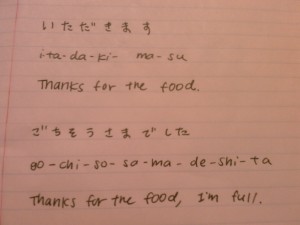 いただきます
i-ta-da-ki- ma-su
Thanks for the food.
ごちそうさまでした
go-chi-so-sa-ma-de-shi-ta
Thanks for the food, I'm full.